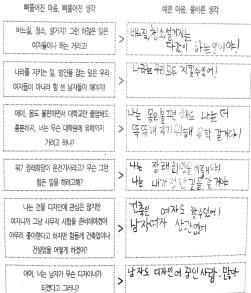 삐뚤어진 마음, 삐뚤어진 생각
예쁜 마음, 올바른 생각
바느질, 청소, 설거지? 그런 하찮은 일은
여자들이나 하는 거라고!
바느질, 청소, 설거지는
다같이 하는 일이야!
나라를 지키는 일, 방안을 갖는 일은 우리
여자들이 아니라 힘 센 남자들이 해야지!
나라는 우리 모두 지킬 수 있어!
에이, 몸도 불편하면서 대학교만 졸업해도
충분하지, 너는 무슨 대학원에 유학까지
가려고 하니?
나는 몸은 불편해도 나는 더
똑똑해지기 위해 유학 갈거야!
뭐? 장래희망이 운전기사라고? 무슨 그런
힘든 일을 하려고해?
나는 장래희망을 이룰거야
나는 내가 정한 길을 갈거야
나는 건물 디자인에 관심은 많지만
여자니까 그냥 사무직 시험을 준비해야겠어
아무리 좋아한다고 하지만 힘들게 건축업이나
건설업을 어떻게 하겠어?
건축은 여자도 할 수 있어!
남자 여자 상관없어
어머, 너는 남자가 무슨 디자이너가
되겠다고 그러니?
남자도 디자인에 꿈인 사람 많아